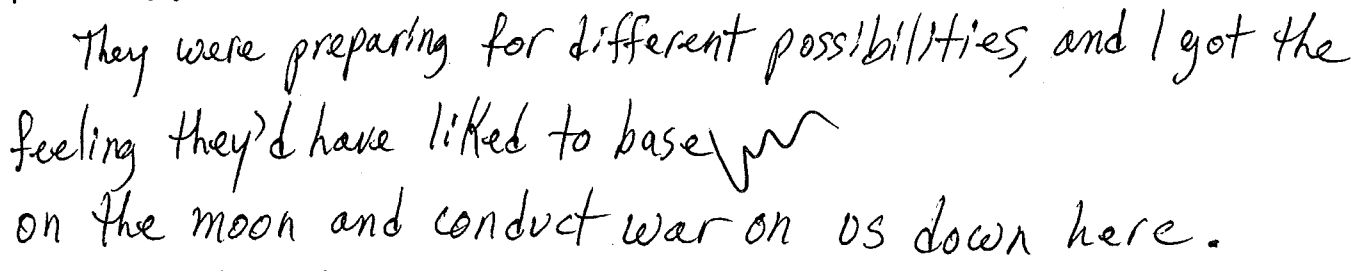 They were preparing for different possibilities, and I got the
feeling they'd have liked to base
on the moon and conduct war on us down here.